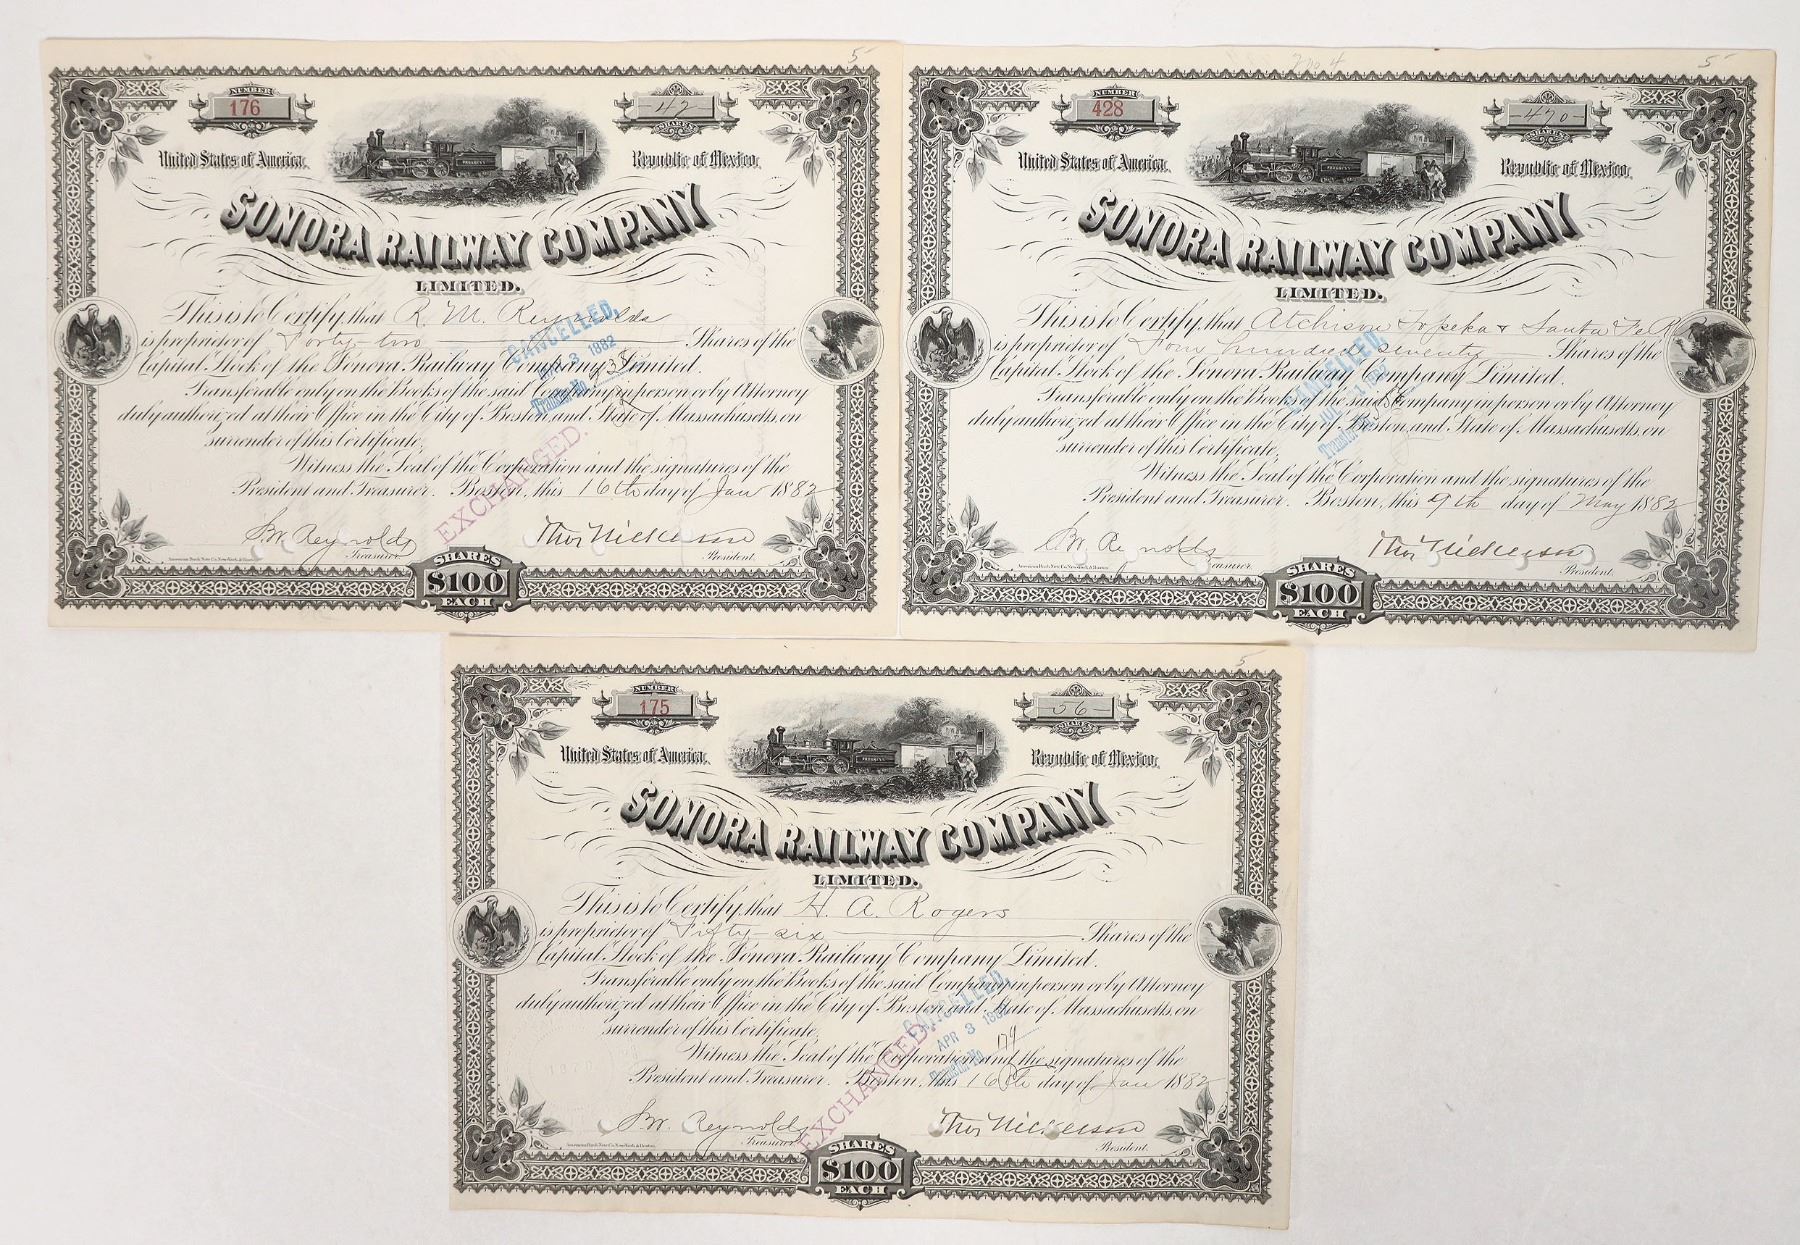 5
NUMBER
176
-42-
SHARES
United States of America.
Republic of Mexico.
SONORA RAILWAY COMPANY
LIMITED.
This is to Certify, that R. M. Reynolds
is proprietor of Forty-two Shares of the
Capital Stock of the Sonora Railway Company Limited.
Transferable only on the Books of the said Company in person or by Attorney
duly authorized at their Office in the City of Boston, and State of Massachusetts, on
surrender of this Certificate.
Witness the Seal of the Corporation and the signatures of the
President and Treasurer. Boston, this 16th day of Jan 1882
CANCELLED,
3 1882
Transfer No.
EXCHANGED.
Reynolds
Treasurer.
Thos Nickerson
President.
American Bank Note Co. New York & Boston.
SHARES
$100
EACH
No 4
5
NUMBER
428
-470-
SHARES
United States of America.
Republic of Mexico.
SONORA RAILWAY COMPANY
LIMITED.
This is to Certify, that Atchison Topeka & Santa Fe R
is proprietor of Four hundred seventy Shares of the
Capital Stock of the Sonora Railway Company Limited.
Transferable only on the Books of the said Company in person or by Attorney
duly authorized at their Office in the City of Boston, and State of Massachusetts, on
surrender of this Certificate.
Witness the Seal of the Corporation and the signatures of the
President and Treasurer. Boston, this 9th day of May 1882
CANCELLED,
Transfer No.
Reynolds
Treasurer.
Thos Nickerson
President.
American Bank Note Co. New York & Boston.
SHARES
$100
EACH
5
NUMBER
175
-56-
SHARES
United States of America.
Republic of Mexico.
SONORA RAILWAY COMPANY
LIMITED.
This is to Certify, that H. A. Rogers
is proprietor of Fifty-six Shares of the
Capital Stock of the Sonora Railway Company Limited.
Transferable only on the Books of the said Company in person or by Attorney
duly authorized at their Office in the City of Boston, and State of Massachusetts, on
surrender of this Certificate.
Witness the Seal of the Corporation and the signatures of the
President and Treasurer. Boston, this 16th day of Jan 1882
CANCELLED,
APR 3 1882
Transfer No. 179
EXCHANGED.
Reynolds
Treasurer.
Thos Nickerson
President.
American Bank Note Co. New York & Boston.
SHARES
$100
EACH